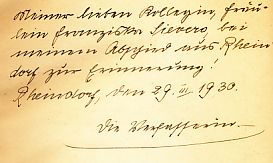 Meiner lieben Kollegin, Fräu-
lein Franziska Sievers, bei
meinem Abschied aus Rhein
dorf zur Erinnerung!
Rheindorf, den 29. III 1930.
Die Verfasserin.